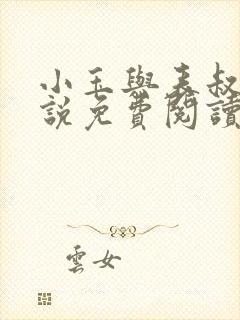 小玉與表叔
說免費閱讀
雲女